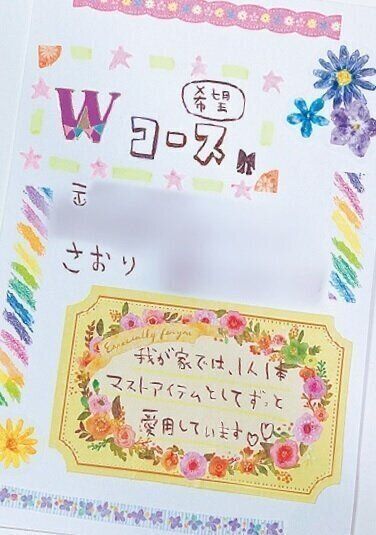 希望
Wコース
〒
さおり
Especially for you
我が家では、1人1本
マストアイテムとしてずっと
愛用しています♡♡